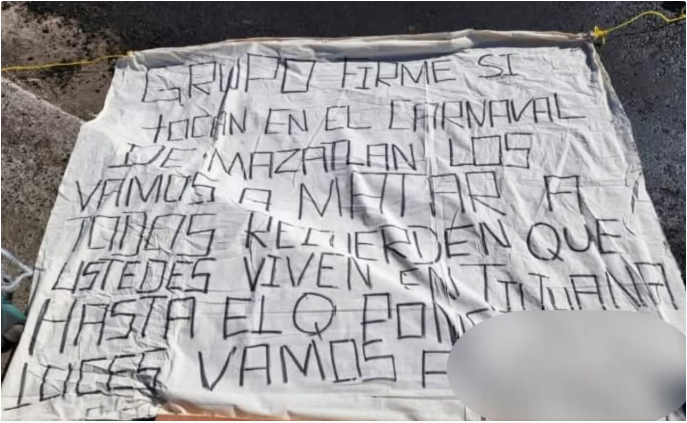 GRUPO FIRME SI
tOCAN EN EL CARNAVAL
DE MAZATLAN LOS
VAMOS A MATAR A
TODOS RECUERDEN QUE
USTEDES VIVEN EN TIJUANA
HASTA EL Q PONE
VAMOS A